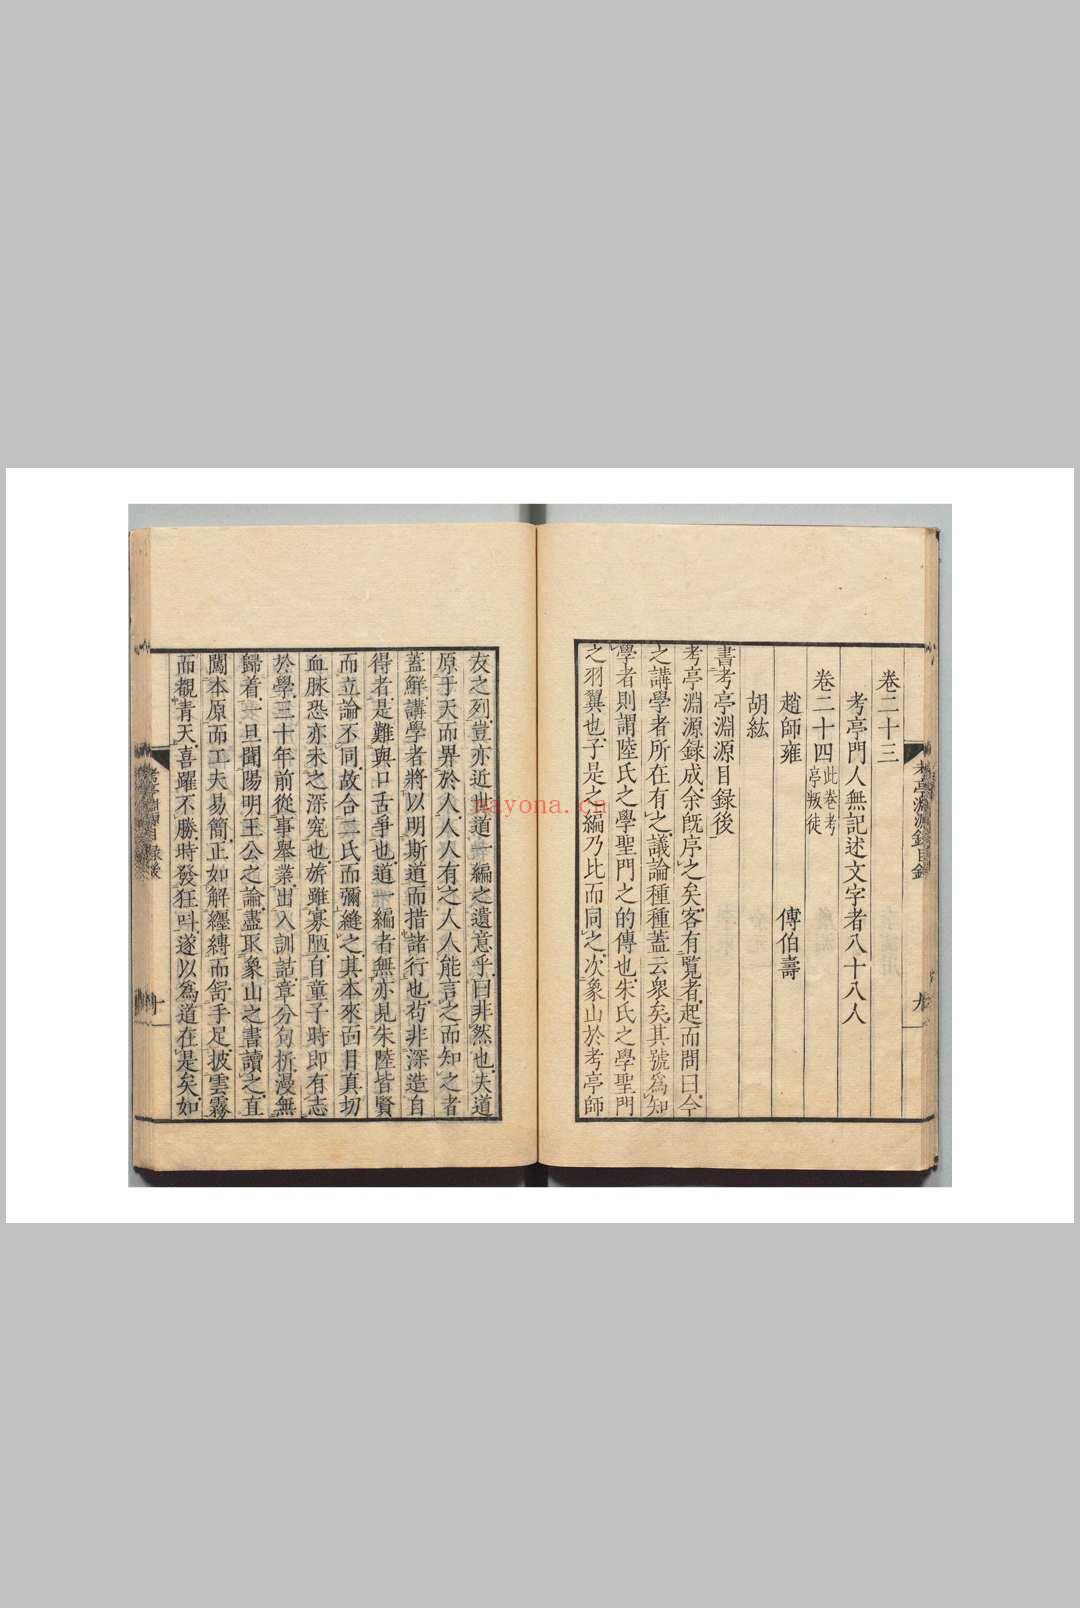 卷二十三
考亭門人無記述文字者八十八人
卷二十四此卷考亭叛徒
趙師雍 傅伯壽
胡紘
書考亭淵源目録後
考亭淵源録成余旣序之矣客有覽者起而問曰今
之講學者所在有之議論種種蓋云衆矣其號爲知
學者則謂陸氏之學聖門之的傳也朱氏之學聖門
之羽翼也子是之編乃比而同之次象山於考亭師
友之列豈亦近世道一編之遺意乎曰非然也夫道
原于天而畀於人人人有之人人能言之而知之者
蓋鮮講學者將以明斯道而措諸行也茍非深造自
得者是難與口舌爭也道一編者無亦見朱陸皆賢
而立論不同故合二氏而彌縫之其本來面目真切
血脉恐亦未之深究也旂雖寡陋自童子時即有志
於學三十年前從事舉業出入訓詁章分句析漫無
歸着一旦聞陽明王公之論盡取象山之書讀之直
闖本原而工夫易簡正如解纏縛而舒手足披雲霧
而覩青天喜躍不勝時發狂叫遂以為道在是矣如
考亭淵源錄目錄
九
十
nayona.cn